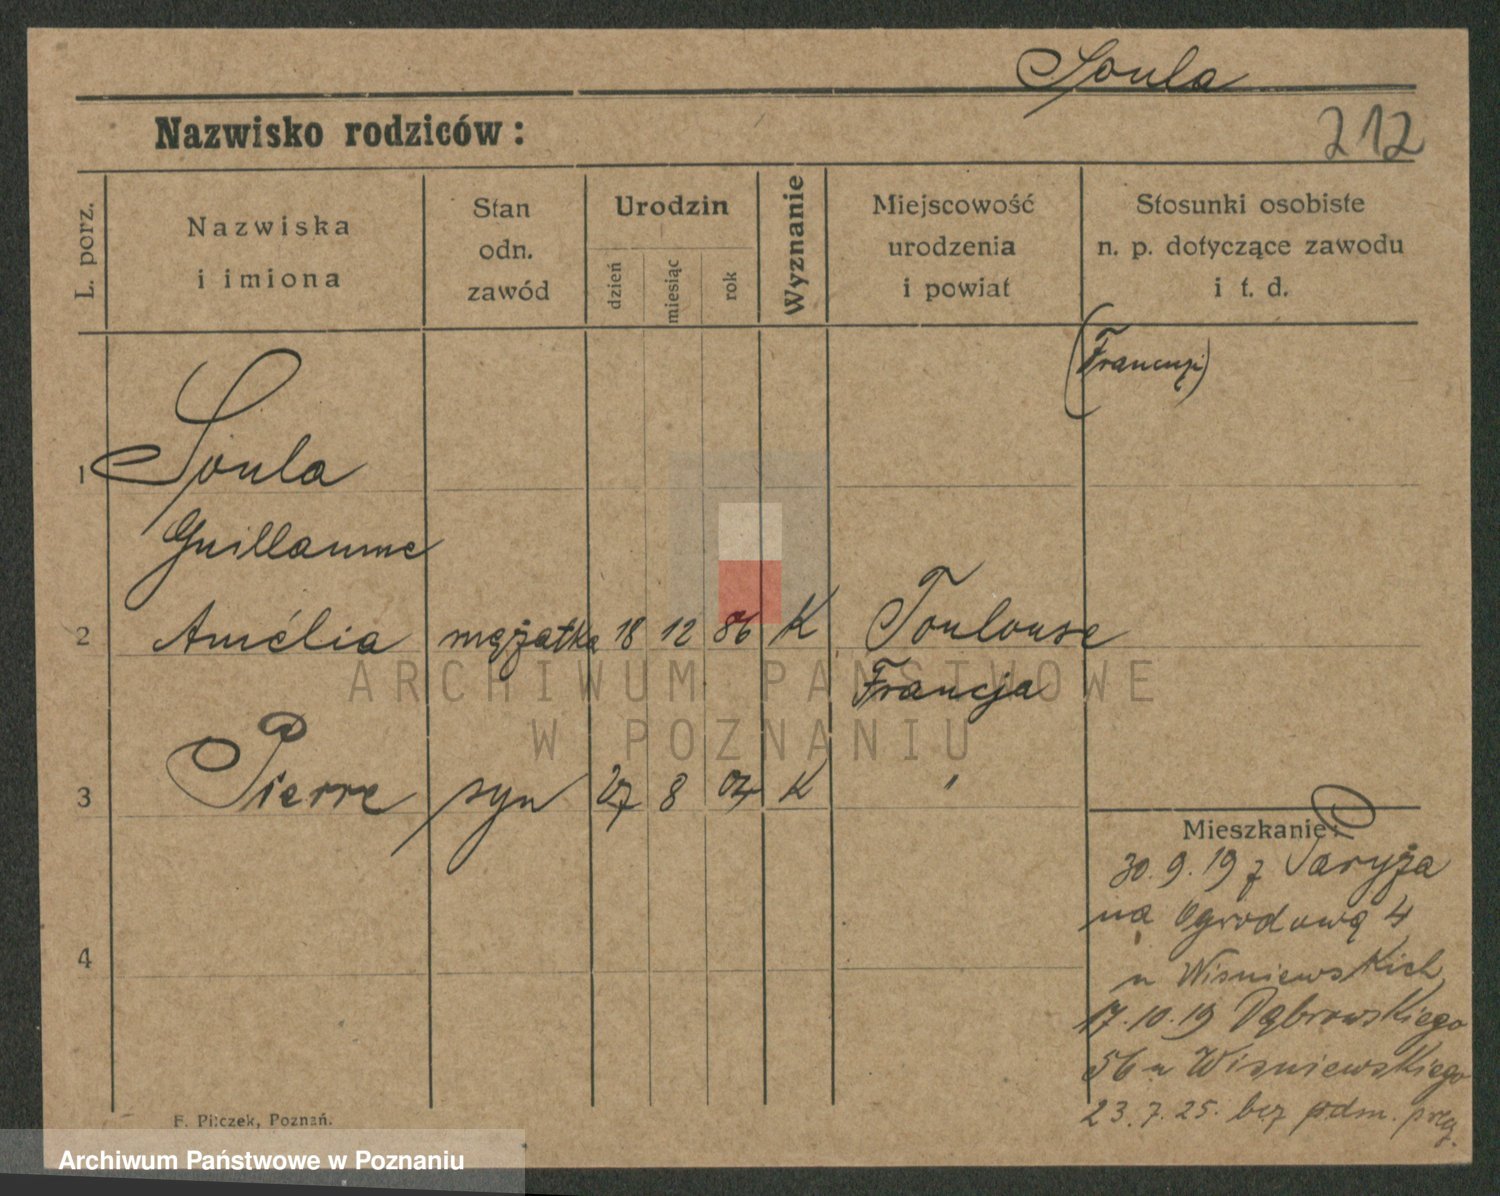 Soula
Nazwisko rodziców:
212
L. porz.
Nazwiska
i imiona
Stan
odn.
zawód
Urodzin
dzień
miesiąc
rok
Wyznanie
Miejscowość
urodzenia
i powiat
Stosunki osobiste
n. p. dotyczące zawodu
i t. d.
(Francuzi)
1 Soula
Guillaume
2 Amélia mężatka 18 12 86 K Toulouse
Francja
3 Pierre syn 27 8 07 K "
4
Mieszkanie:
30.9.19 z Paryża
na Ogrodową 4
u Wisniewskich
17.10.19 Dąbrowskiego
56 u Wisniewskiego
23.7.25. bez
F. Pilczek, Poznań.
ARCHIWUM PAŃSTWOWE
W POZNANIU
Archiwum Państwowe w Poznaniu